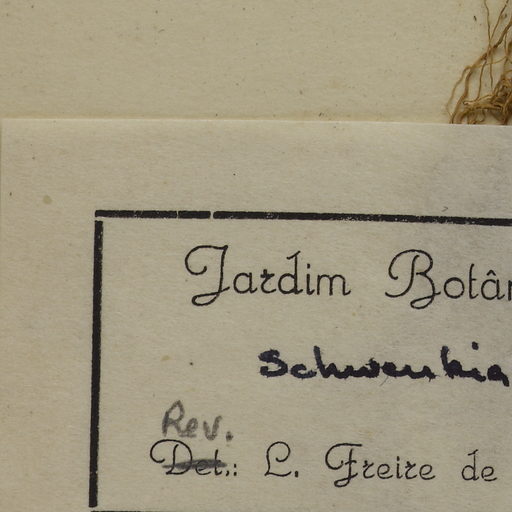 Jardim Botân
Schwenkia
Rev.
Det.: L. Freire de